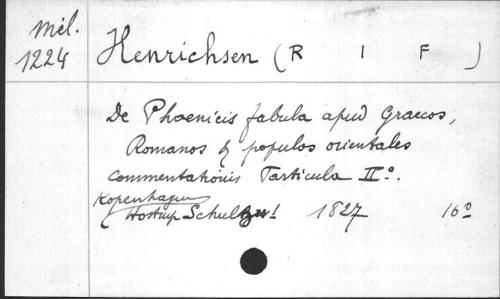 Mél.
1224
Henrichsen (R I F)
De Phoenicis fabula apud Graecos,
Romanos & populos orientales
commentationis Particula II°.
Kopenhagen
Hostrup Schultz! 1827 16°